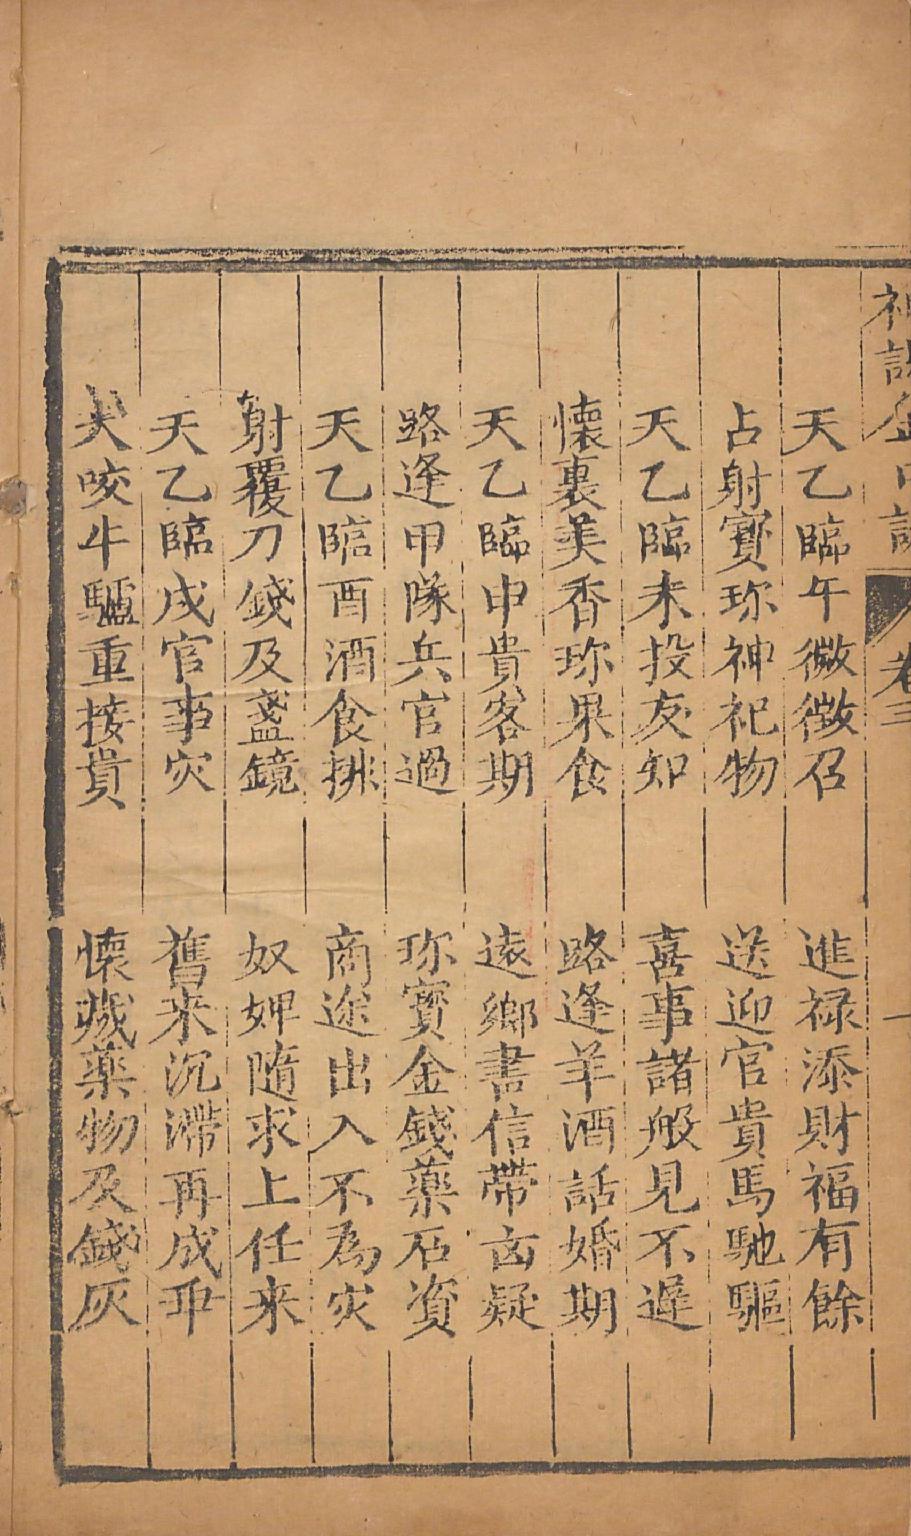 神課金口訣 卷三 一
天乙臨午微徵召 進禄添財福有餘
占射寳珎神祀物 送迎官貴馬馳驅
天乙臨未投友知 喜事諸般見不遲
懐裏美香珎果食 路逢羊酒話婚期
天乙臨申貴客期 遠鄉書信帶凶疑
路逢甲隊兵官過 珎寳金錢藥石資
天乙臨酉酒食排 商途出入不為灾
射覆刀錢及盞鏡 奴婢隨求上任来
天乙臨戌官事灾 舊来沉滯再成乖
犬咬牛驢重接貴 懐藏藥物及錢灰